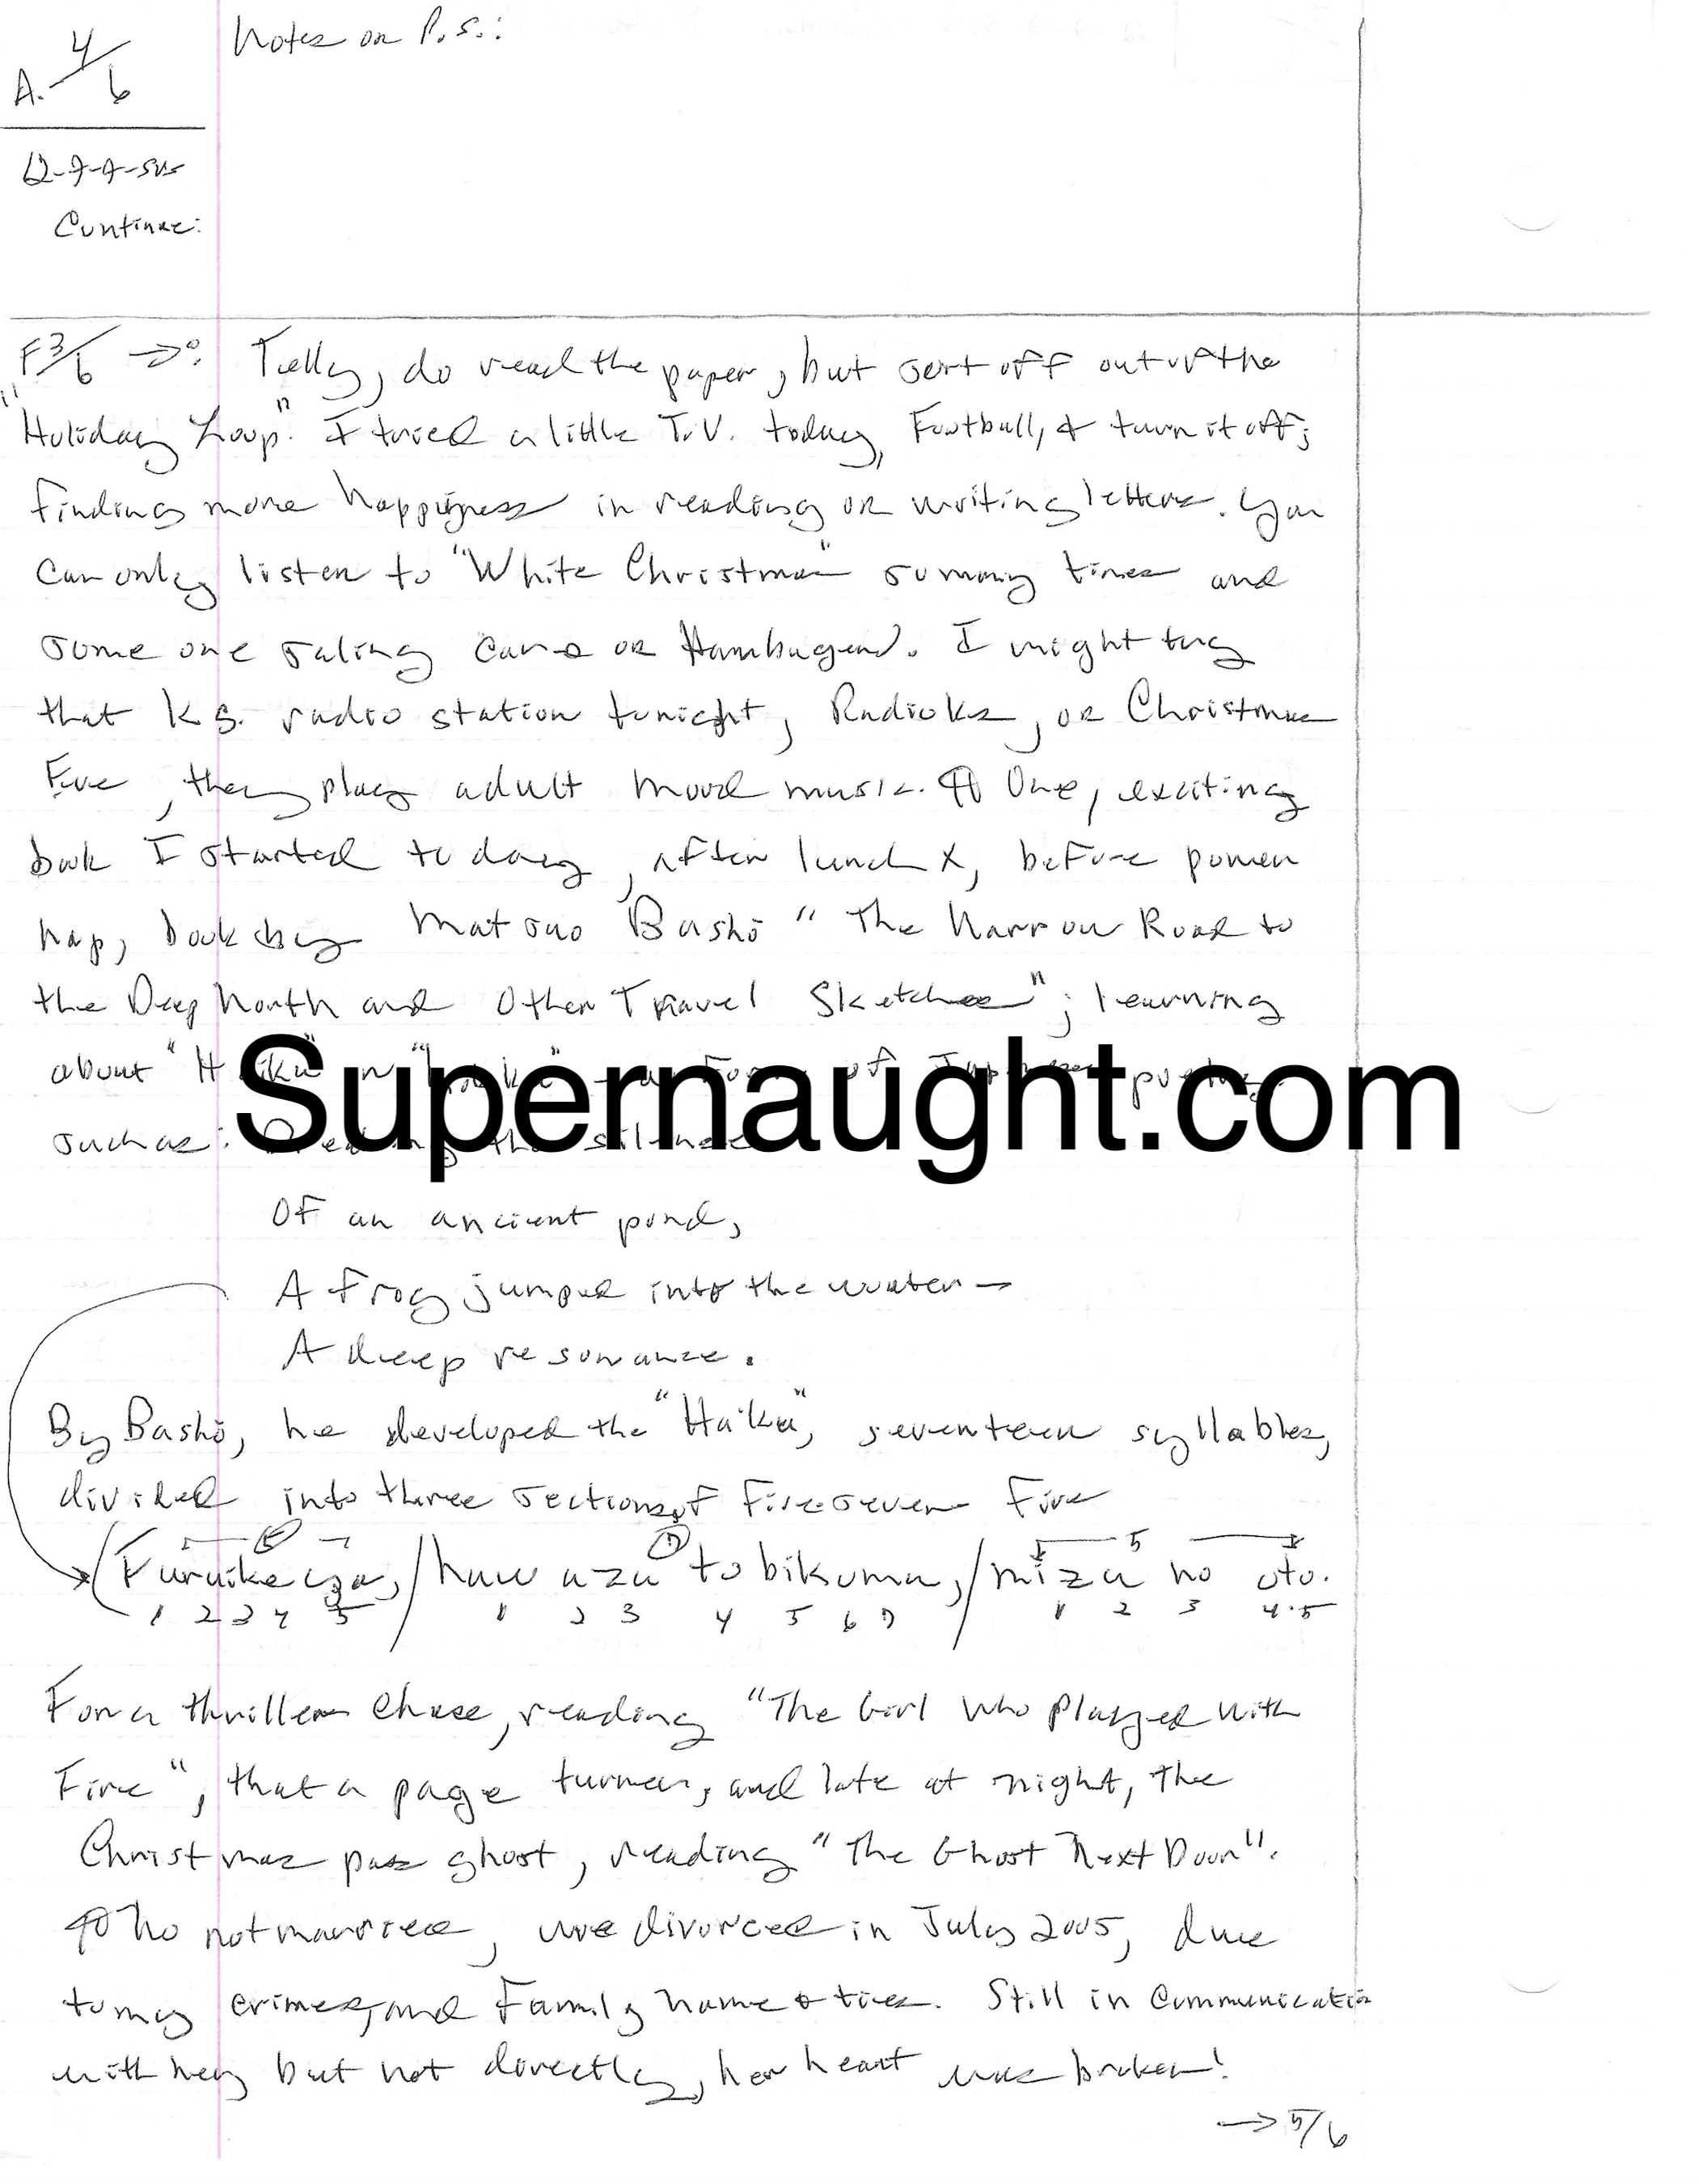 Notes on P.S.:
A. 4/6
Q-7-A-sus
Continue:
F 3/6 → : Telly, do read the paper, but sort off out of the
"Holiday Loop." I tried a little T.V. today, Football, & turn it off;
finding more happyness in reading or writing letters. You
can only listen to "White Christmas" so many times and
some one saling cars or Hambugers. I might try
that KS. radio station tonight, Radio Ks, or Christmas
Eve, they play adult mood music. ¶ One, exciting
book I started today, after lunch &, before power
nap, book by Matsuo Bashō "The Narrow Road to
the Deep North and Other Travel Sketches"; learning
about "Haiku" of
Supernaught.com
such as: Breaking the silence
Of an ancient pond,
A frog jumped into the water —
A deep resonance.
By Bashō, he developed the "Haiku", seventeen syllables,
divided into three sections of five-seven-five
5 7 5
(Furuike ya, / kawazu tobikomu, / mizu no oto.
1 2 3 4 5 1 2 3 4 5 6 7 1 2 3 4.5
For a thriller chase, reading "The Girl Who Played with
Fire", that a page turner, and late at night, the
Christmas pass ghost, reading "The Ghost Next Door".
¶ No not married, was divorced in July 2005, due
to my crimes, and Family name & ties. Still in Communication
with her, but not directly, her heart was broken!
→ 5/6